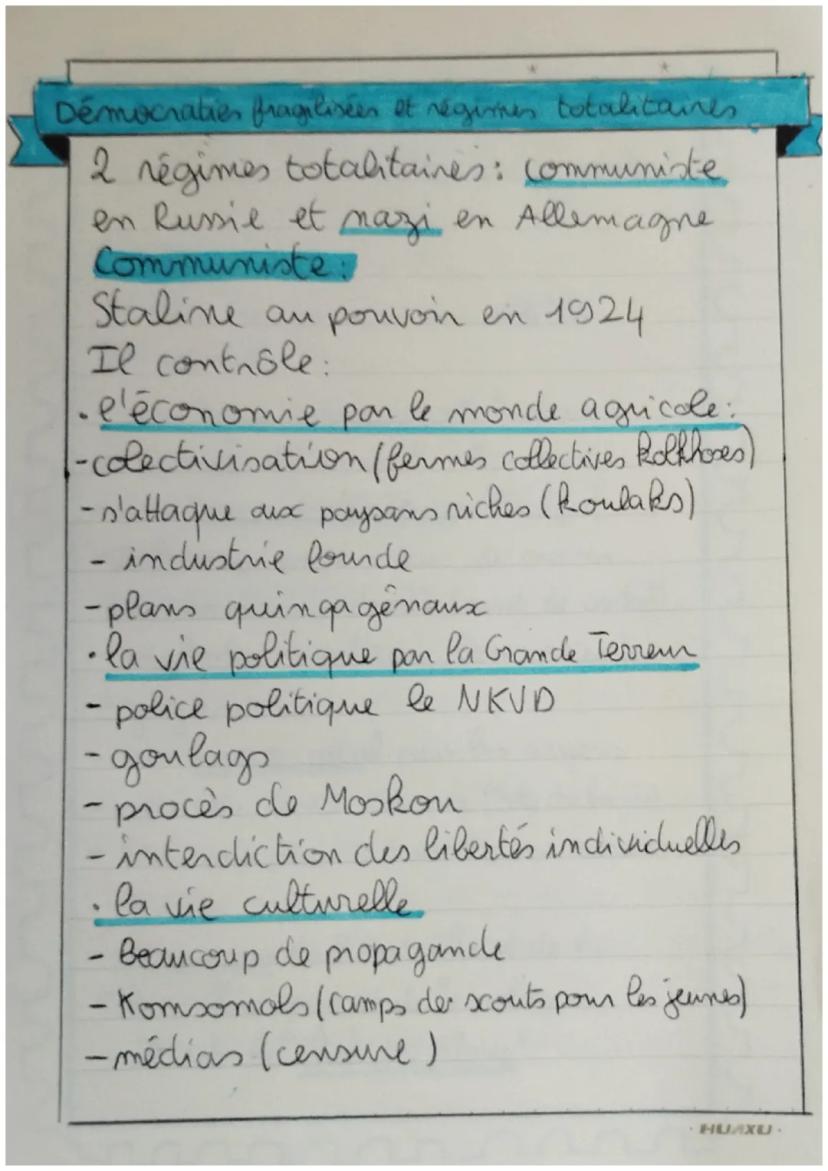 Démocraties fragilisées et régimes totalitaires
2 régimes totalitaires: communiste
en Russie et nazi en Allemagne
Communiste:
Staline au pouvoir en 1924
Il contrôle:
• l'économie par le monde agricole:
-colectivisation (fermes collectives kolkhoses)
- s'attaque aux paysans riches (koulaks)
- industrie lourde
- plans quinqagénaux
• la vie politique par la Grande Terreur
- police politique le NKVD
- goulags
- procès de Moskou
- interdiction des libertés individuelles
• la vie culturelle
- Beaucoup de propagande
- Komsomols (camps de scouts pour les jeunes)
- médias (censure)
HUAXU